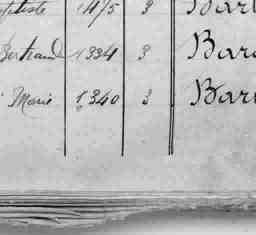 1415 3 Bar
Bertrand 1334 3 Bar
Marie 1340 3 Bar